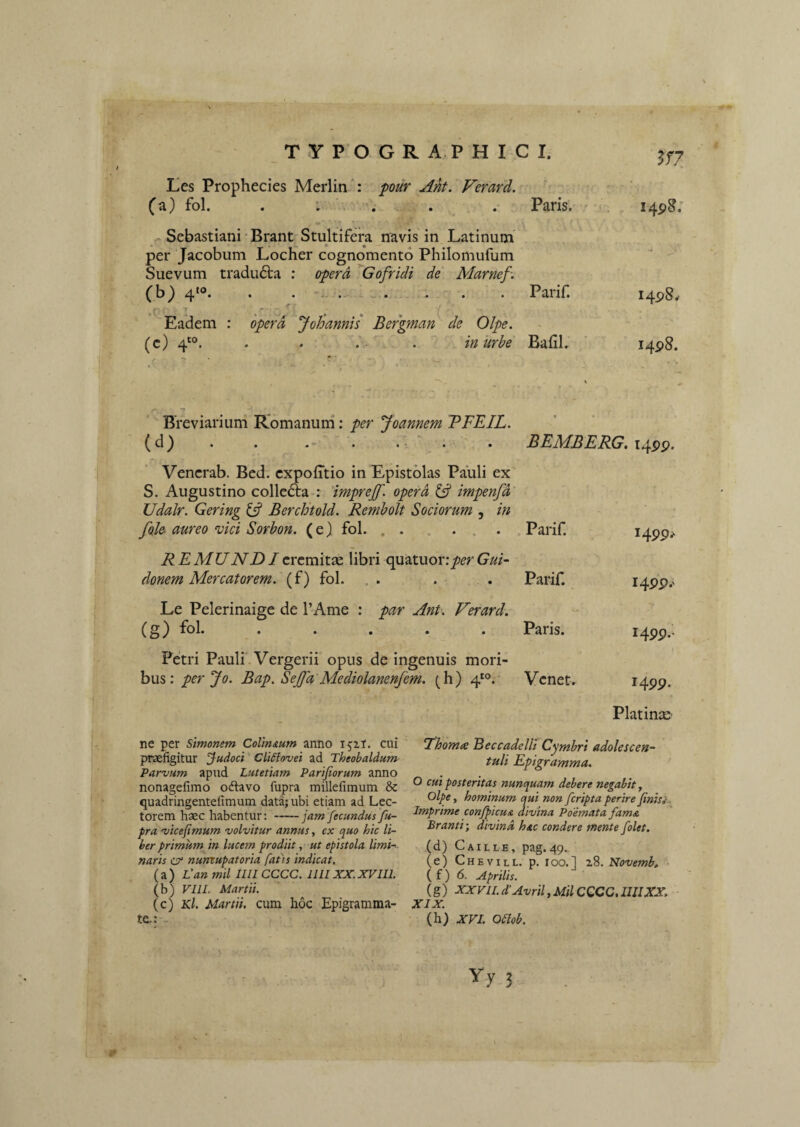 TYPOGRAPHICI. 357
Les Prophecies Merlin : pour Ant. Verard.
(a) fol. . . . . . Paris. 1498.
Sebastiani Brant Stultifera navis in Latinum
per Jacobum Locher cognomento Philomusum
Suevum traducta : operâ Gofridi de Marnef.
(b) 4to. . . . . . . . Parif. 1498.
Eadem : operâ Johannis Bergman de Olpe.
(c) 4to. . . . . in urbe Bafil. 1498.
Breviarium Romanum : per Joannem PFEIL.
(d) . . . . . . . BEMBERG. 1499.
Venerab. Bed. expofitio in Epistolas Pauli ex
S. Augustino collecta : impreff. operâ & impenfâ
Udalr. Gering & Berchtold. Rembolt Sociorum , in
fole aureo vici Sorbon. (e) fol. . . . . Parif. 1499.
REMUNDI eremitæ libri quatuor: per Gui-
donem Mercatorem. (f) fol. . . . . Parif. 1499.
Le Pelerinaige de l'Ame : par Ant. Verard.
(g) fol. . . . . . Paris. 1499.
Petri Pauli Vergerii opus de ingenuis mori-
bus : per Jo. Bap. Seffa Mediolanenfem. (h) 4to. Venet. 1499.
Platinæ
ne per Simonem Colinæum anno 1521. cui
præfigitur Judoci Clictovei ad Theobaldum
Parvum apud Lutetiam Parifiorum anno
nonagefimo octavo fupra millefimum &
quadringentefimum data; ubi etiam ad Lec-
torem hæc habentur: —— jam fecundus fu-
pra vicefimum volvitur annus, ex quo hic li-
ber primùm in lucem prodiit, ut epistola limi-
naris & nunrupatoria fatis indicat.
(a) L'an mil IIII CCCC. IIII XX. XVIII.
(b) VIII. Martii.
(c) Kl. Martii. cum hôc Epigramma-
te.:
Thomæ Beccadelli Cymbri adolescen-
tuli Epigramma.
O cui posteritas nunquam debere negabit,
Olpe, hominum qui non fcripta perire finis.
Imprime confpicuæ divina Poëmata famæ
Branti; divinâ hæc condere mente folet.
(d) Caille, pag. 49.
(e) Chevill. p. 100.] 28. Novemb.
(f) 6. Aprilis.
(g) XXVII. d'Avril, Mil CCCC. IIIIXX.
XIX.
(h) XVI. Octob.
Yy 3